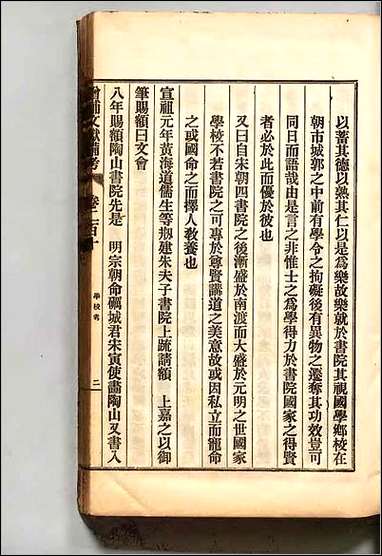 以蓄其德以熟其仁以是爲樂故樂就於書院其視國學鄕校在
朝市城郭之中前有學令之拘礙後有異物之遷奪其功效豈可
同日而語哉由是言之非惟士之爲學得力於書院國家之得賢
者必於此而優於彼也
又曰自宋朝四書院之後漸盛於南渡而大盛於元明之世國家
學校不若書院之可專於尊賢講道之美意故或因私立而寵命
之或國命之而擇人敎養也
宣祖元年黃海道儒生等刱建朱夫子書院上疏請額 上嘉之以御
筆賜額曰文會
八年賜額陶山書院先是 明宗朝命礪城君宋寅使畵陶山又書入
增補文獻備考 卷二百十 學校考 二